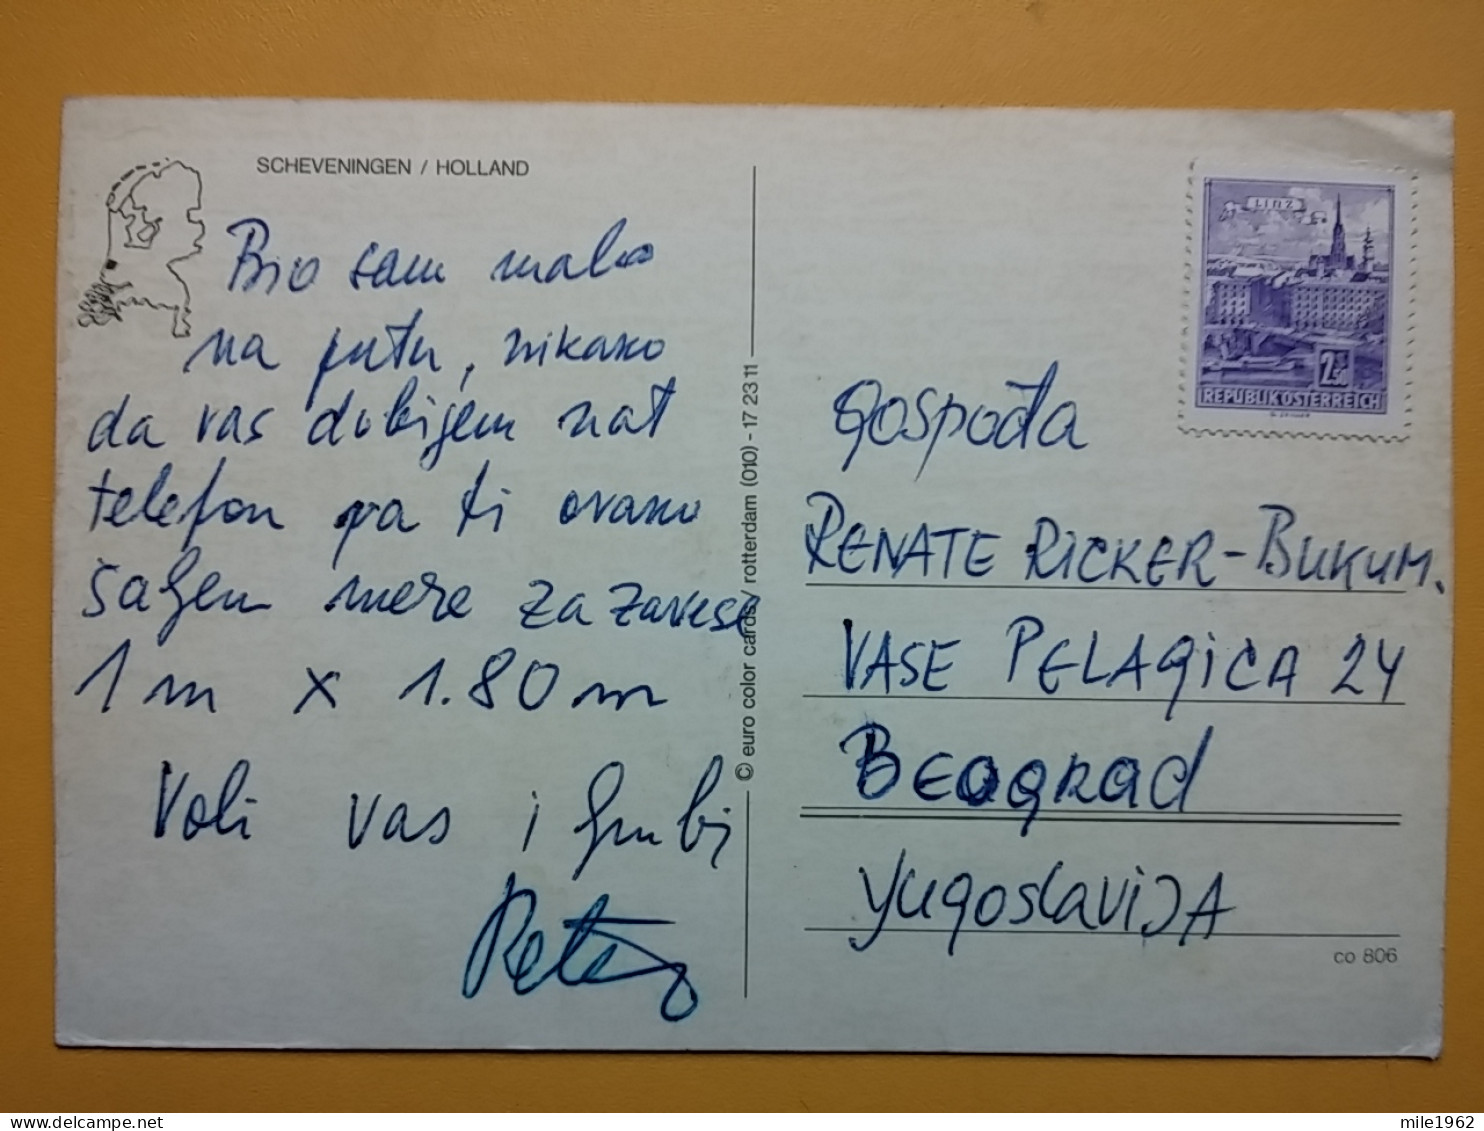 SCHEVENINGEN / HOLLAND
Bio sam malo
na putu, nikako
da vas dobijem na t
telefon pa ti ovako
šaljem mere za zavese
1 m x 1.80 m
Voli vas i ljubi
Peter
© euro color cards / rotterdam (010) - 17 23 11
LINZ
2.50
REPUBLIK ÖSTERREICH
gospođa
RENATE RICKER-BUKUM.
VASE PELAGICA 24
BEOGRAD
YUGOSLAVIJA
co 806
mile1962